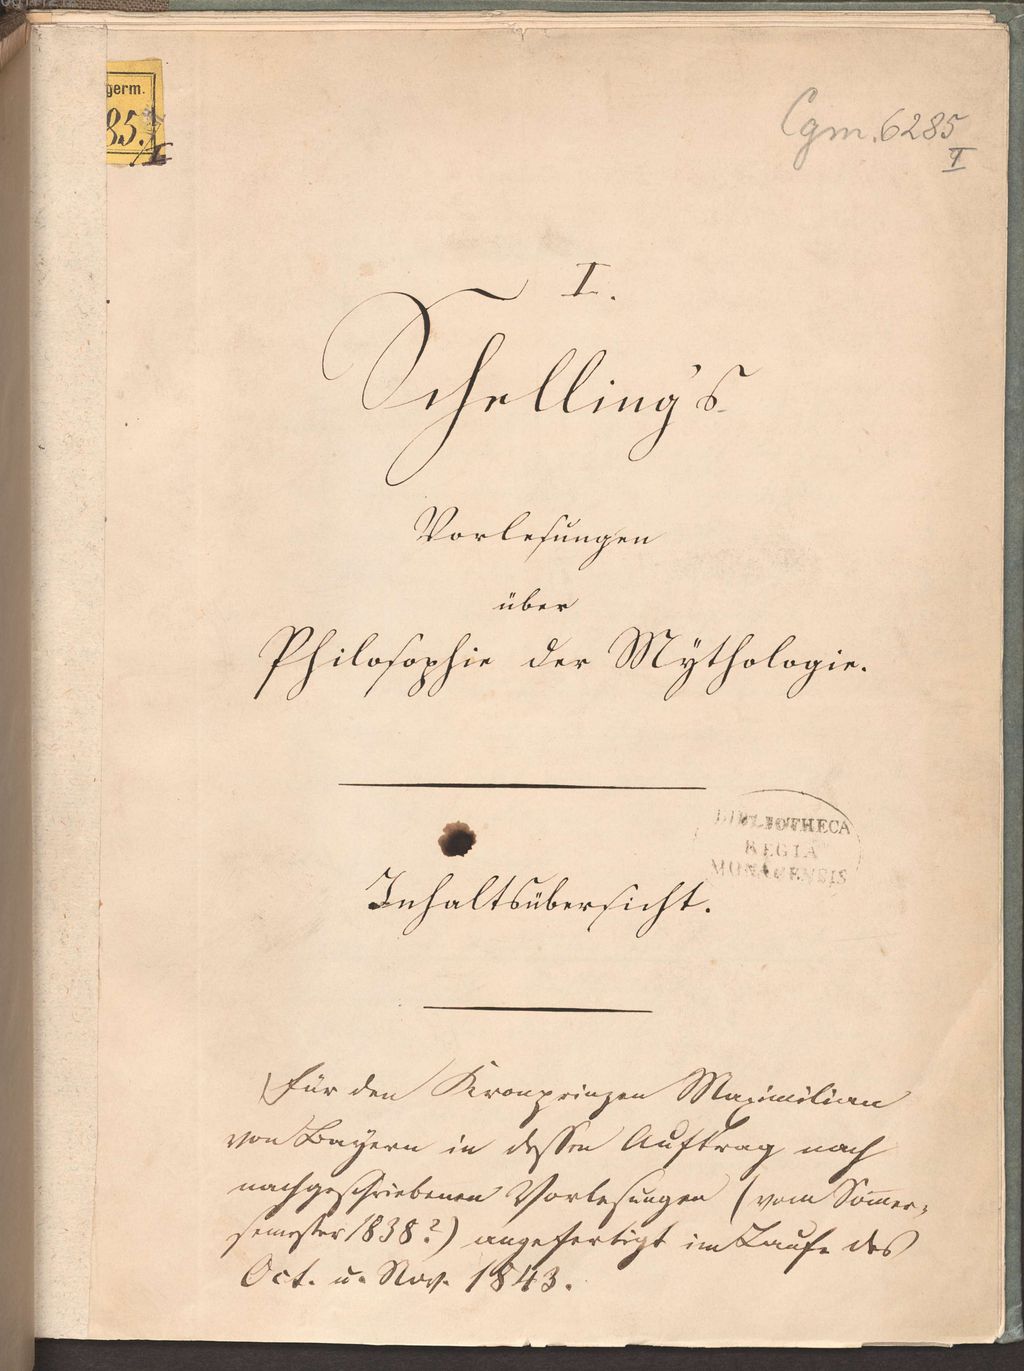 germ.
85.
I
Cgm. 6285
I
I.
Schelling's
Vorlesungen
über
Philosophie der Mythologie.
BIBLIOTHECA
REGIA
MONACENSIS
Inhaltsübersicht.
Für den Kronprinzen Maximilian
von Bayern in dessen Auftrag nach
nachgeschriebenen Vorlesungen (vom Som̅er-
semester 1838?) angefertigt im Laufe des
Oct. u. Nov. 1843.